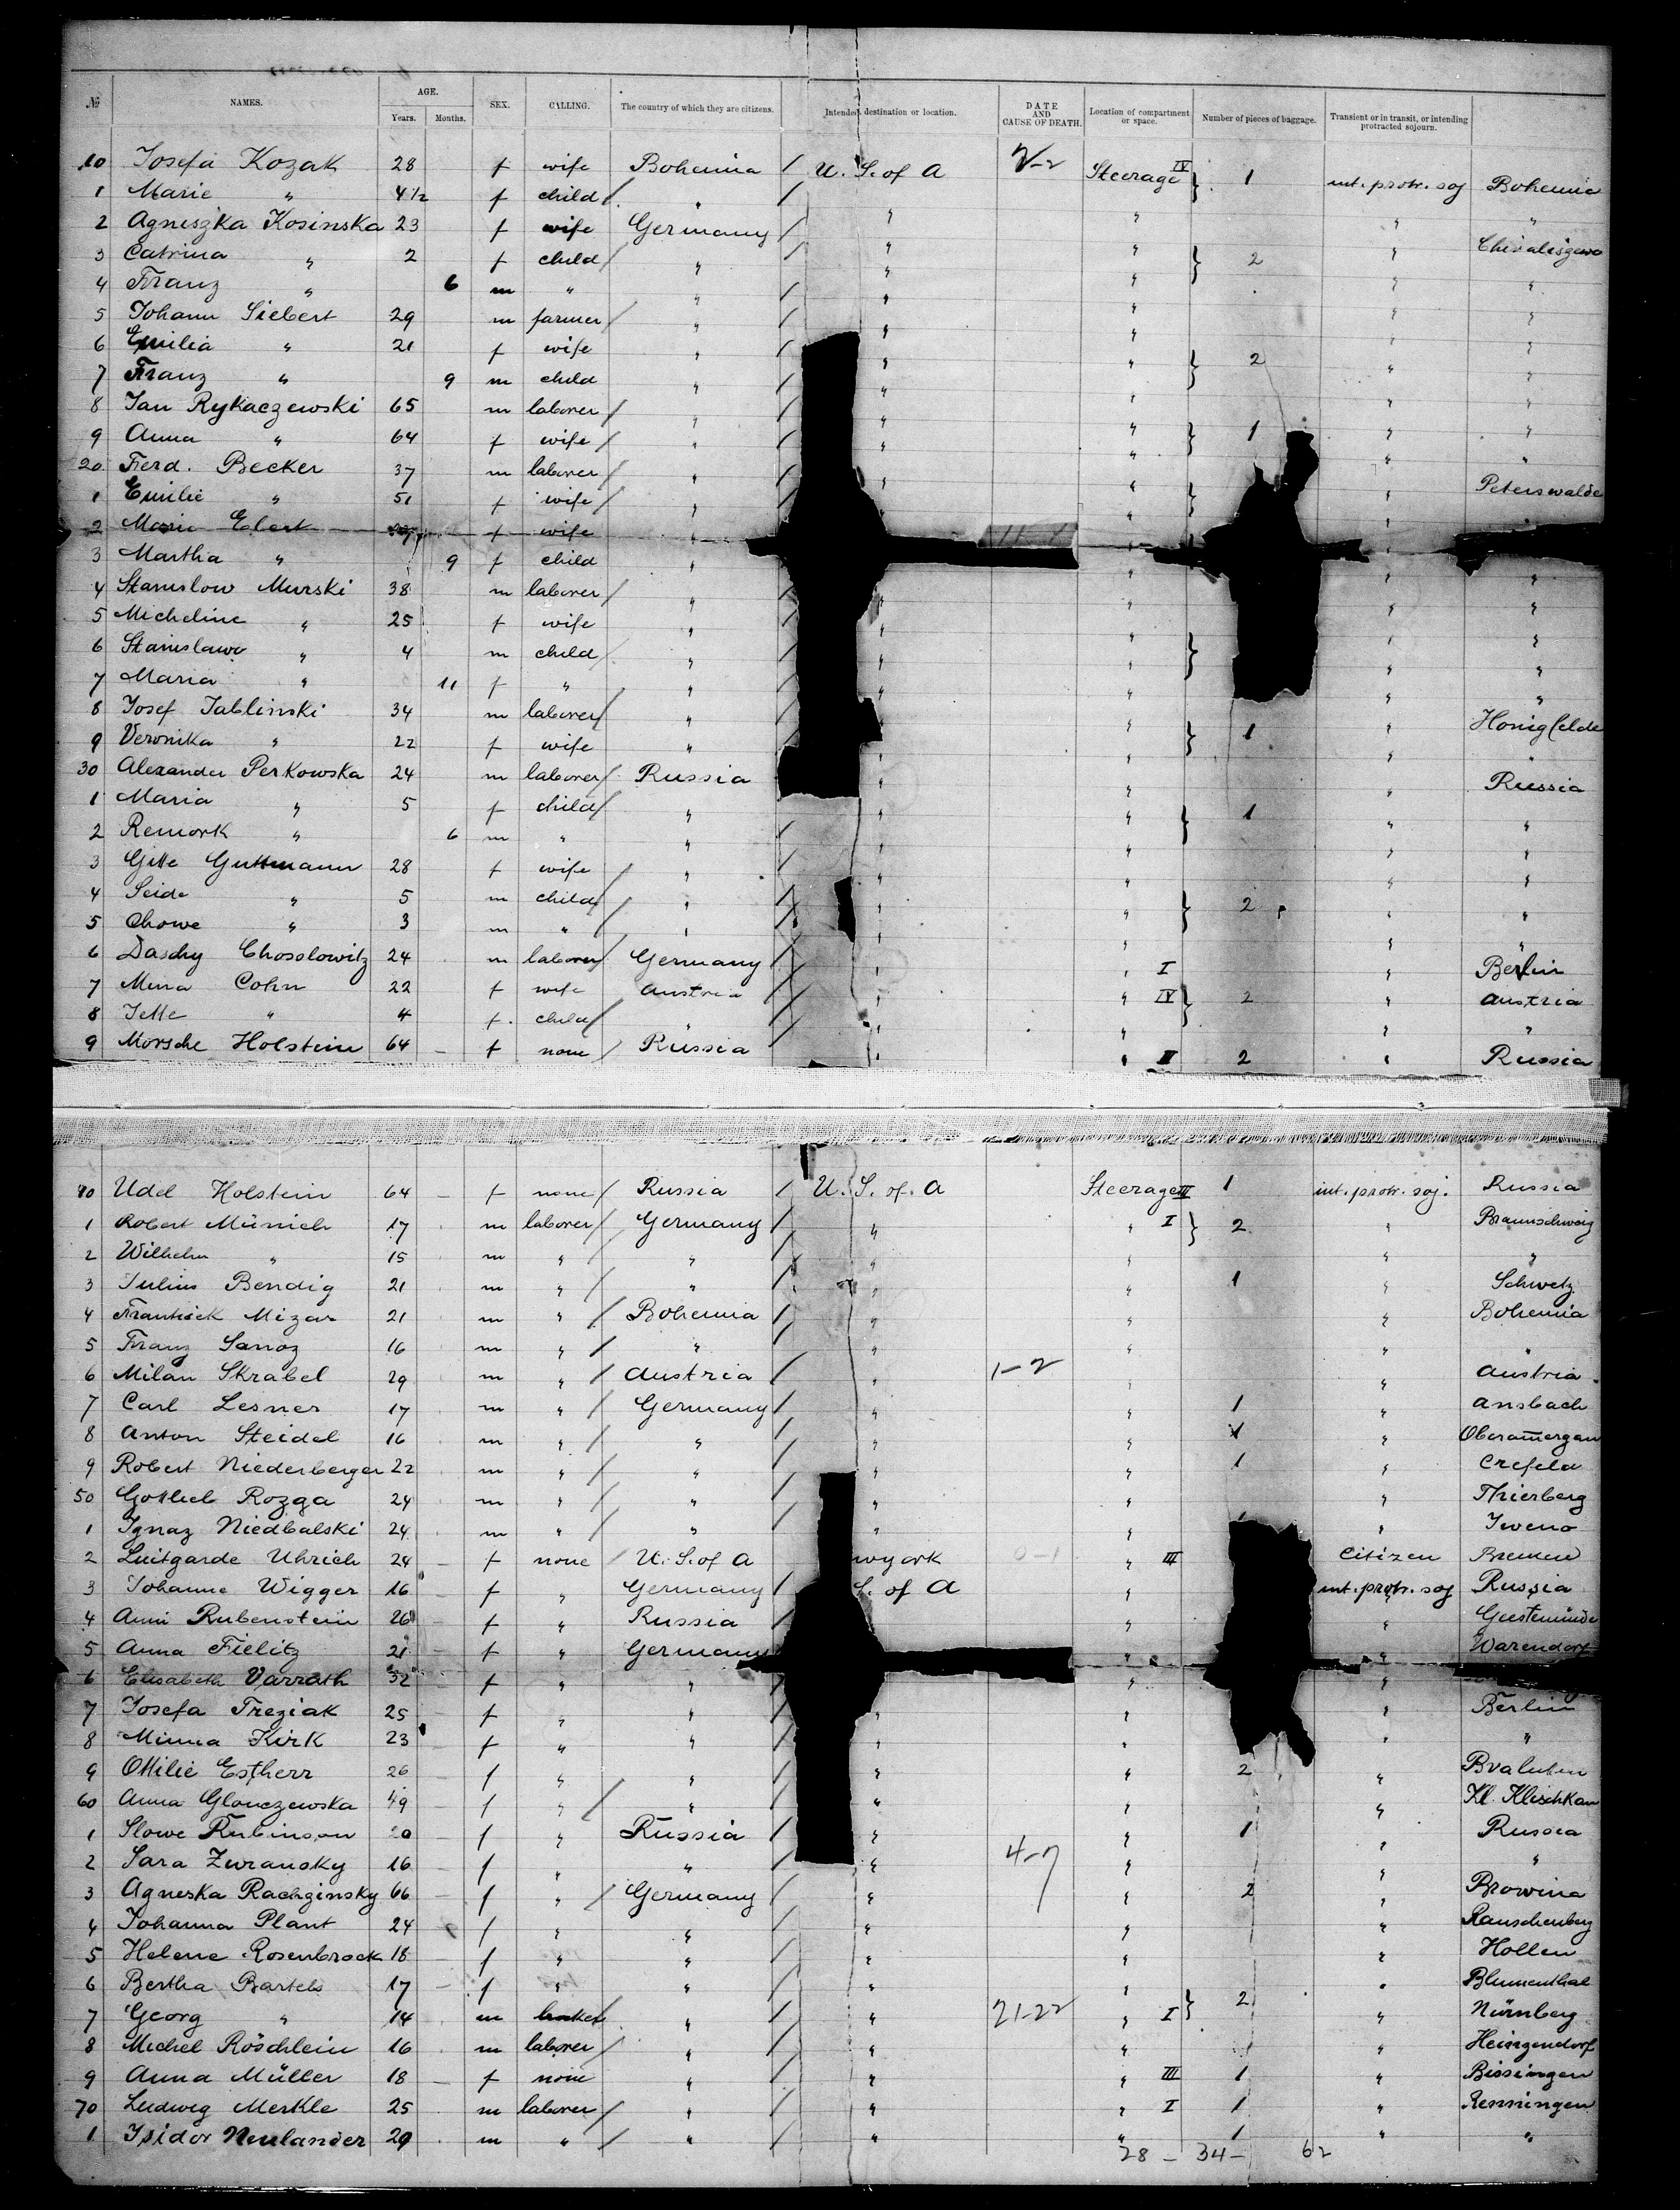 № NAMES. AGE. Years. Months. SEX. CALLING. The country of which they are citizens. Intended destination or location. DATE AND CAUSE OF DEATH. Location of compartment or space. Number of pieces of baggage. Transient or in transit, or intending protracted sojourn.
10 Josefa Kozak 28 f wife Bohemia / U. S. of A Steerage IV } 1 int. protr. soj Bohemia
1 Marie " 4½ f child / " / " " " "
2 Agnieszka Kosinska 23 f wife Germany / " " "
3 Catrina " 2 f child / " / " " } 2 "
4 Franz " 6 m " " / " " " "
5 Johann Siebert 29 m farmer / " / " " " "
6 Emilia " 21 f wife " / " " } 2 " "
7 Franz " 9 m child " / " " " "
8 Jan Rykaczewski 65 m laborer / " / " " } 1 " "
9 Anna " 64 f wife / " / " " " "
20 Ferd. Becker 37 m laborer / " / " " } " Peterswalde
1 Emilie " 51 f wife / " / " " "
2 Marie Ebert f wife "
3 Martha " 9 f child " " " "
4 Stanislow Murski 38 m laborer / " / " " " "
5 Micheline " 25 f wife " / " " " "
6 Stanislaw " 4 m child / " / " " } " "
7 Maria " 11 f " " / " " " "
8 Josef Jablinski 34 m laborer / " / " " } 1 " Honigfelde
9 Veronika " 22 f wife " / " " "
30 Alexander Perkowska 24 m laborer / Russia " " " Russia
1 Maria " 5 f child / " " " } 1 " "
2 Remork " 6 m " " / " " " "
3 Gitte Guttmann 28 f wife / " / " " " "
4 Seide " 5 m child / " / " " } 2 " "
5 Chowe " 3 m " / " / " " " "
6 Daschy Choslowitz 24 m laborer / Germany / " " I " Berlin
7 Mina Cohn 22 f wife Austria / " " IV } 2 " Austria
8 Jette " 4 f child / " / " " " "
9 Morsche Holstein 64 f none / Russia " " III 2 " Russia
40 Udel Holstein 64 f none / Russia / U. S. of A Steerage III 1 int. protr. soj. Russia
1 Robert Münich 17 m laborer / Germany / " " I } 2 " Braunschweig
2 Wilhelm " 15 m " / " / " " " "
3 Julius Bendig 21 m " / " / " " 1 " Schwetz
4 Frantisek Mizar 21 m " / Bohemia / " " " Bohemia
5 Franz Sanoz 16 m " / " / " " " "
6 Milan Skrabel 29 m " / Austria / " 1-2 " " Austria
7 Carl Lesner 17 m " / Germany / " " 1 " Ansbach
8 Anton Steidel 16 m " / " / " " 1 " Oberam̄ergau
9 Robert Niederberger 22 m " / " / " " 1 " Crefeld
50 Gottlieb Rozga 24 m " / " / " " " Thierberg
1 Ignaz Niedbalski 24 m " / " / " " " Iweno
2 Luitgarde Uhrich 24 f none / U. S. of A wyork 0-1 " III Citizen Bremen
3 Johanne Wigger 16 f " Germany / S. of A " int. protr. soj Russia
4 Anni Rubenstein 26 f " Russia / " " " Geestemünde
5 Anna Fielitz 21 f " Germany " " Warendorf
6 Elisabeth Varrath 32 f " " / " "
7 Josefa Treziak 25 f " " / " " " Berlin
8 Minna Kirk 23 f " " / " " " "
9 Ottilie Estherr 26 f " " / " " 2 "
60 Anna Glonczewska 49 f " / " / " " " Kl. Klischkau
1 Slowe Rubinson 20 f " Russia / " " 1 " Russia
2 Sara Zuransky 16 f " " / " 4-7 " " "
3 Agneska Rachzinsky 66 f " / Germany / " " 2 " Browina
4 Johanna Plant 24 f " " / " " " Rauschenberg
5 Helene Rosenbrock 18 f " " / " " " Hollen
6 Bertha Bartels 17 f " " / " " " Blumenthal
7 Georg " 14 m " / " 21-22 " I } 2 " Nürnberg
8 Michel Röschlein 16 m laborer / " / " " "
9 Anna Müller 18 f none " / " " III 1 " Bissingen
70 Ludwig Merkle 25 m laborer / " / " " I 1 " Renningen
1 Isidor Neulander 29 m " / " / " " 1 " "
28 - 34 - 62